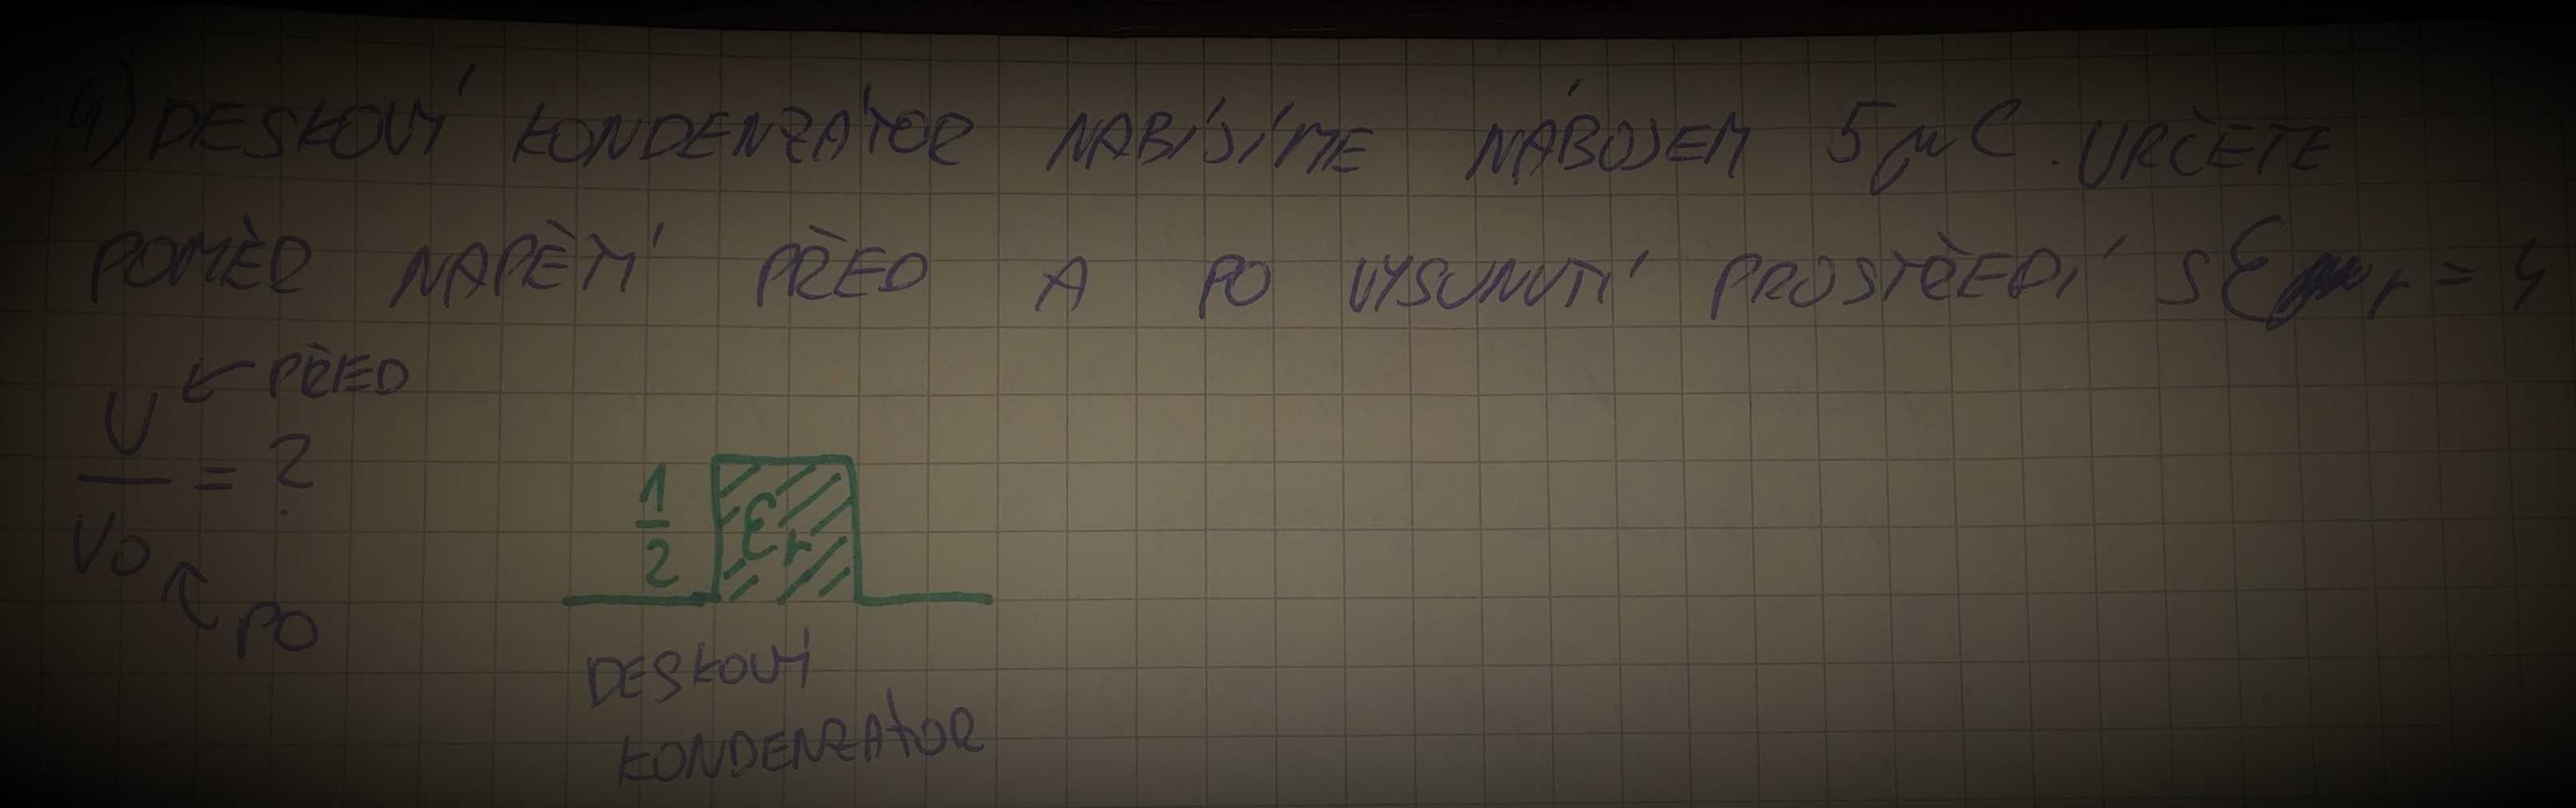 4) DESKOVÝ KONDENZÁTOR NABÍJÍME NÁBOJEM 5μC. URČETE
POMĚR NAPĚTÍ PŘED A PO VYSUNUTÍ PROSTŘEDÍ S εr = 4
U ← PŘED
— = ?
U0 ↖ PO
1/2 εr
DESKOVÝ
KONDENZÁTOR